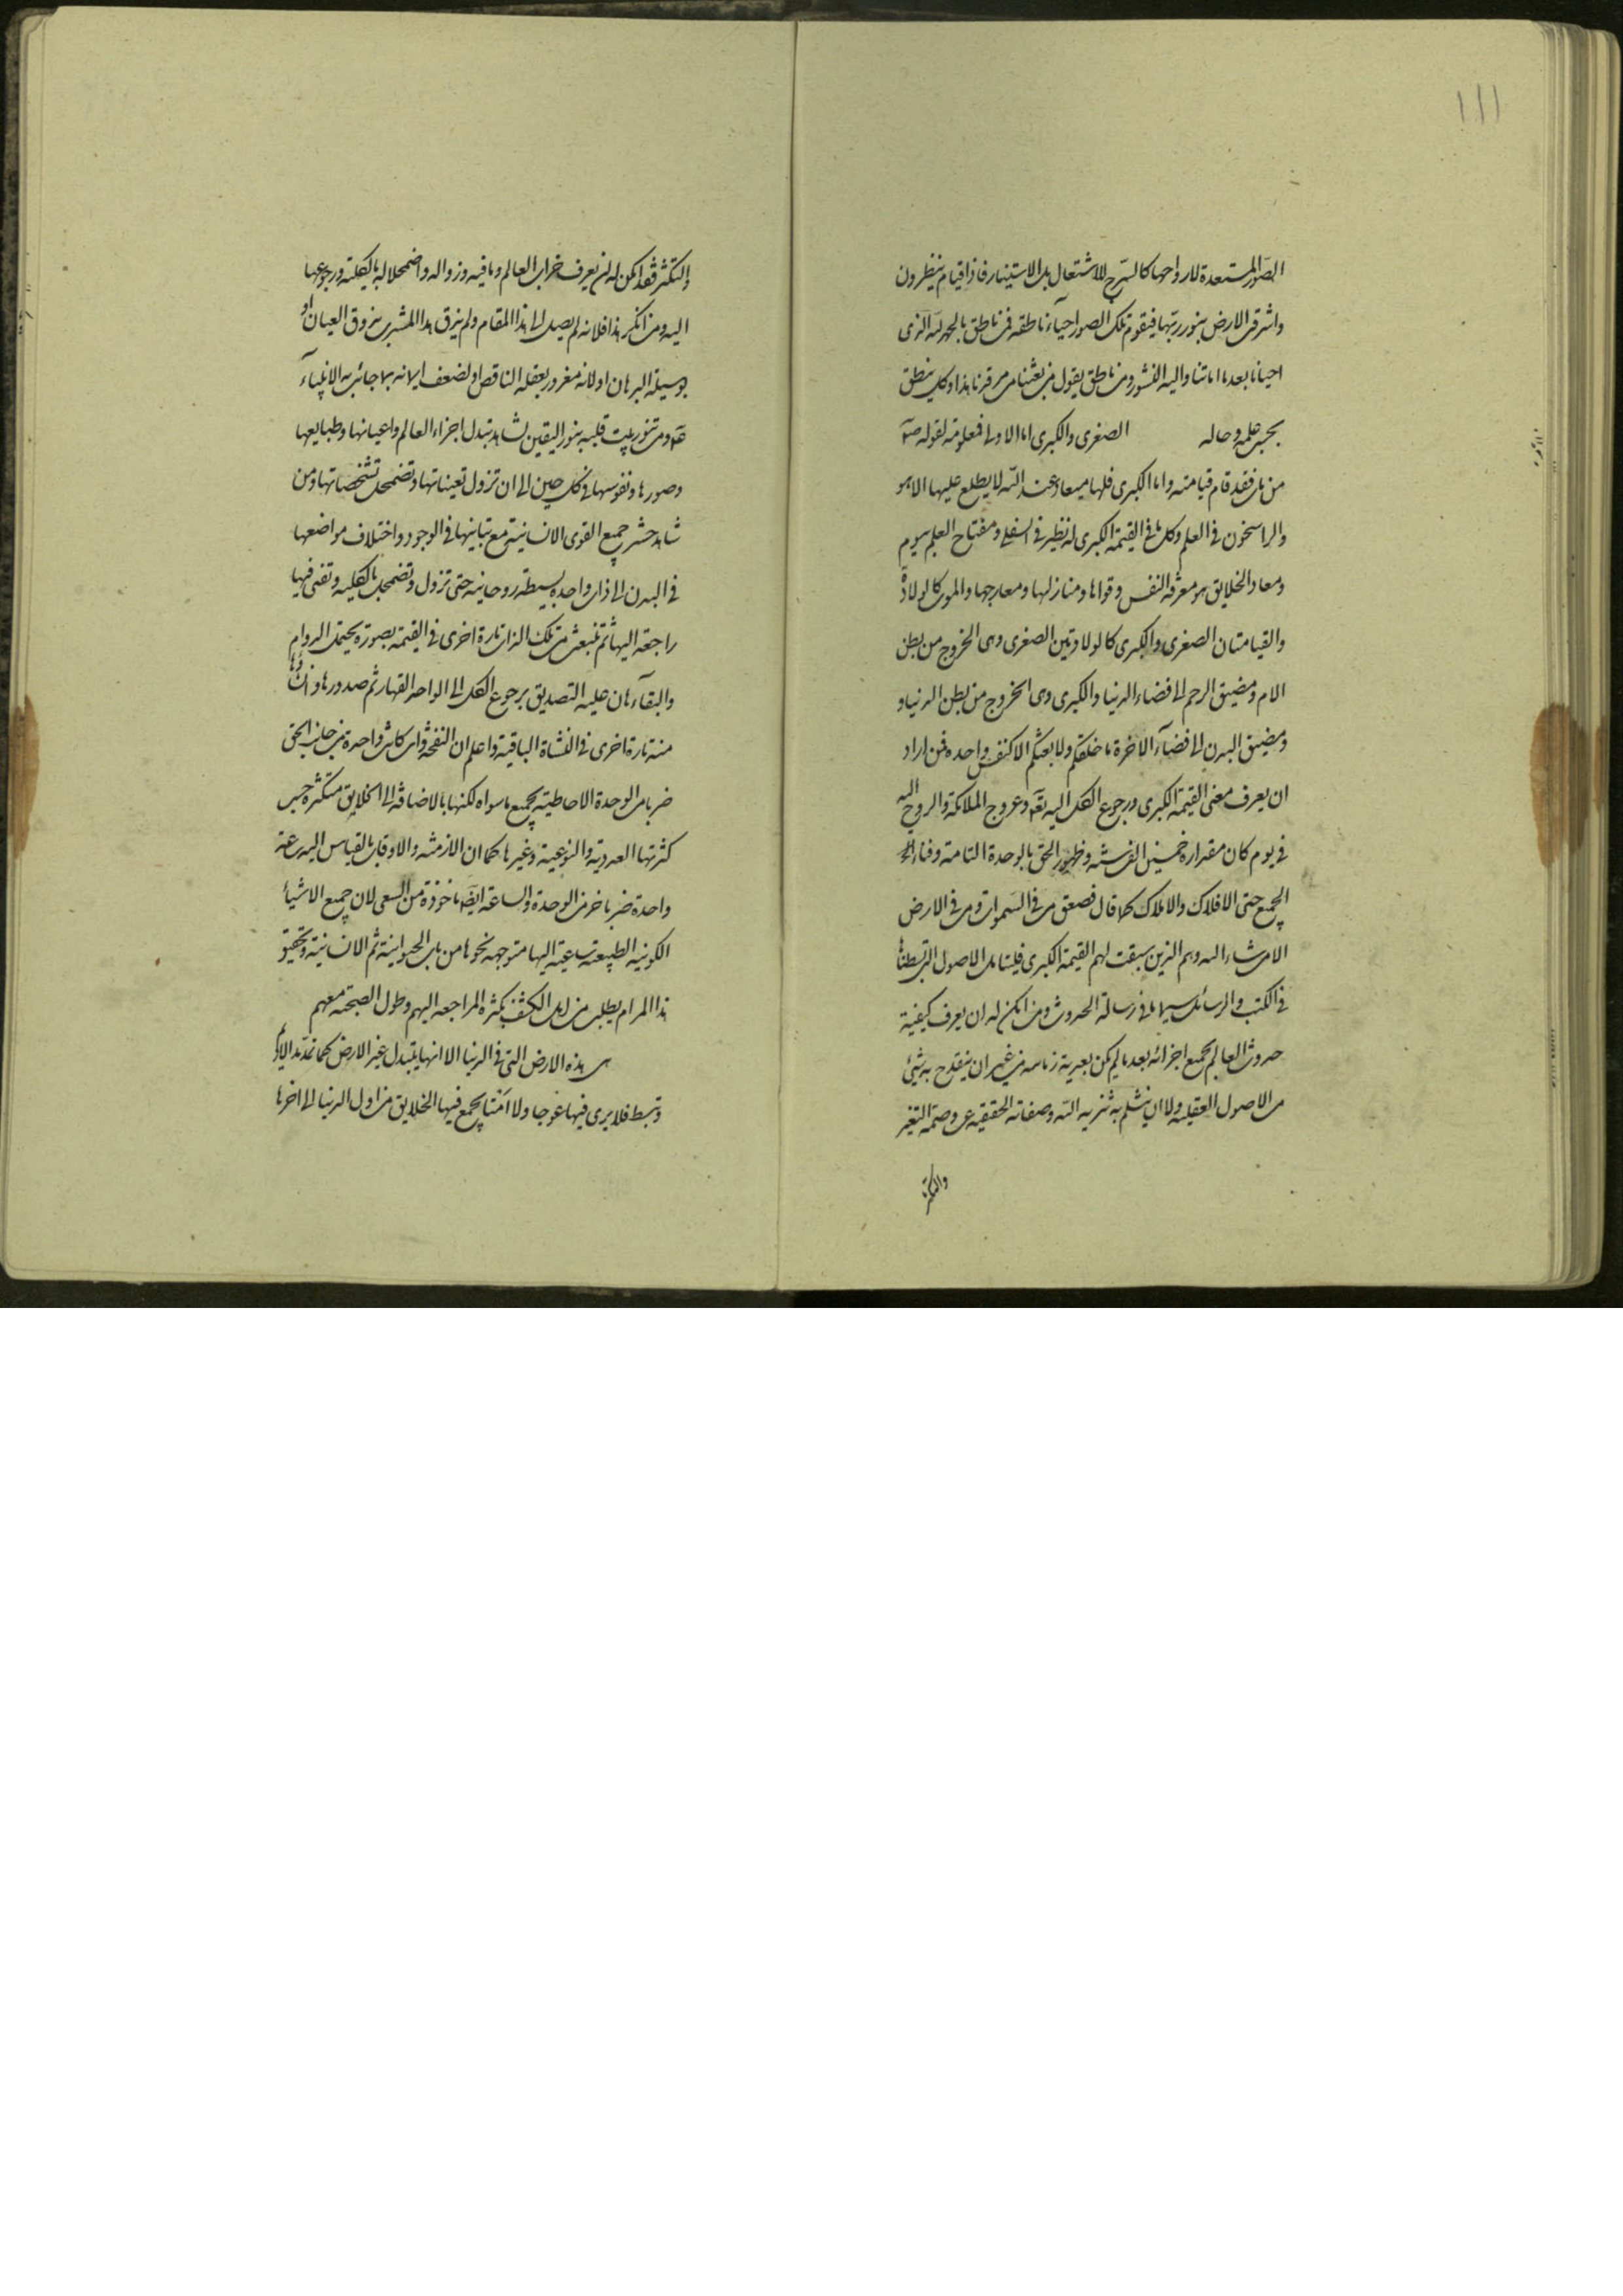 ١١١
الصّور المستعدة لارواحها كالسّرج للاشتعال بل الاستينار فاذا قيام ينظرون
واشرقت الارض بنور ربّها فيقوم تلك الصور احياء ناطقة فمن ناطق بالحمد لله الذى
احيانا بعد ما اماتنا واليه النشور ومن ناطق يقول من بعثنا من مرقدنا هذا وكل ينطق
بحسب علمه وحاله الصغرى والكبرى اما الاولى فمعلومة لقوله ص
من مات فقد قام قيامته واما الكبرى فلها ميعاد عند اللّه لا يطلع عليها الا هو
والراسخون فى العلم وكل ما فى القيمة الكبرى له نظير فى السفلى ومفتاح العلم بيوم
ومعاد الخلايق هو معرفة النفس وقواها ومنازلها ومعارجها والموت كالولادة
والقيامتان الصغرى والكبرى كالولادتين الصغرى وهى الخروج من بطن
الام ومضيق الرحم الى فضاء الدنيا والكبرى وهى الخروج من بطن الدنيا و
ومضيق البدن الى فضاء الاخرة ما خلقكم ولا بعثكم الا كنفس واحدة فمن اراد
ان يعرف معنى القيمة الكبرى ورجوع الكل اليه تعه وعروج الملائكة والروح اليه
فى يوم كان مقداره خمسين الف سنة وظهور الحق بالوحدة التامة وفناء
الجميع حتى الافلاك والاملاك كما قال فصعق من فى السّموات ومن فى الارض
الا من شاء اللّه وهم الذين سبقت لهم القيمة الكبرى فليتامل الاصول التى بسطناها
فى الكتب والرسائل سيما ما فى رسالة الحدوث ومن امكن له ان يعرف كيفية
حدوث العالم بجميع اجزائه بعد ما لم يكن بعدية زمانية من غير ان ينقدح به شئ
من الاصول العقلية ولا ان ينثلم به تنزيه اللّه وصفاته الحقيقية عن وصمة التغير
والتكثر
والتكثر فقد امكن له ان يعرف خراب العالم وما فيه وزواله واضمحلاله بالكلية ورجوعها
اليه ومن انكر هذا فلانه لم يصل الى هذا المقام ولم يذق هذا المشرب بذوق العيان او
بوسيلة البرهان او لانه مغرور بعقله الناقص او لضعف ايمانه بما جائت به الانبياء
ع ومن تنور بيت قلبه بنور اليقين لشاهد تبدل اجزاء العالم واعيانها وطبايعها
وصورها ونفوسها فى كل حين الى ان تزول تعيناتها وتضمحل تشخصاتها ومن
شاهد حشر جميع القوى الانسانية مع تباينها فى الوجود واختلاف مواضعها
فى البدن الى ذات واحدة بسيطة روحانية حتى تزول وتضمحل بالكلية وتفنى فيها
راجعة اليها ثم تنبعث من تلك الذات تارة اخرى فى القيمة بصورة يحتمل الدوام
والبقاء هان عليه التصديق برجوع الكل الى الواحد القهار ثم صدورها و
منه تارة اخرى فى النشاة الباقية واعلم ان النفخة وان كانت واحدة من جانب الحق
ضربا من الوحدة الاحاطية بجميع ما سواه لكنها بالاضافة الى الخلايق متكثرة حسب
كثرتها العددية والنوعية وغيرها كما ان الازمنة والاوقات بالقياس اليه ساعة
واحدة ضربا خر من الوحدة والساعة ايضا ماخوذة من السعى لان جميع الاشياء
الكونية الطبيعية ساعية اليها متوجهة نحوها من باب الحيوانية ثم الانسانية وتحقيق
هذا المرام يطلب من اهل الكشف بكثرة المراجعة اليهم وطول الصحبة معهم
هى هذه الارض التى فى الدنيا الا انها يتبدل غير الارض كما تمدّ مد الاديم
وتبسط فلا يرى فيها عوجا ولا امتا يجمع فيها الخلايق من اول الدنيا الى اخرها